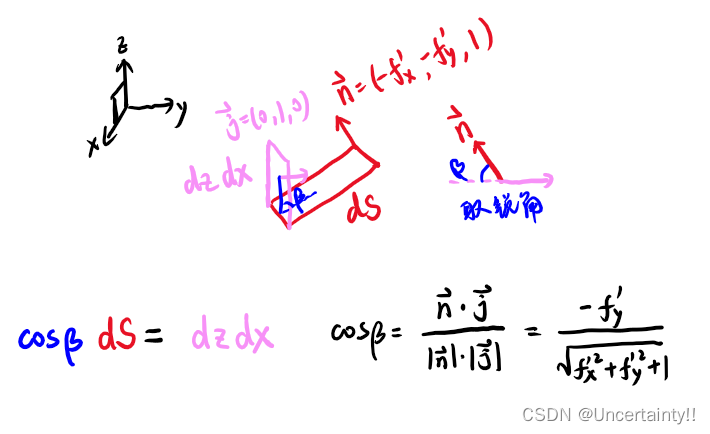 z
y
x
n⃗=(-f'x,-f'y,1)
j⃗=(0,1,0)
dzdx
β
dS
n⃗
β
取锐角
cosβ dS = dzdx
cosβ = n⃗·j⃗ / |n⃗|·|j⃗| = -f'y / √(f'x²+f'y²+1)
CSDN @Uncertainty!!